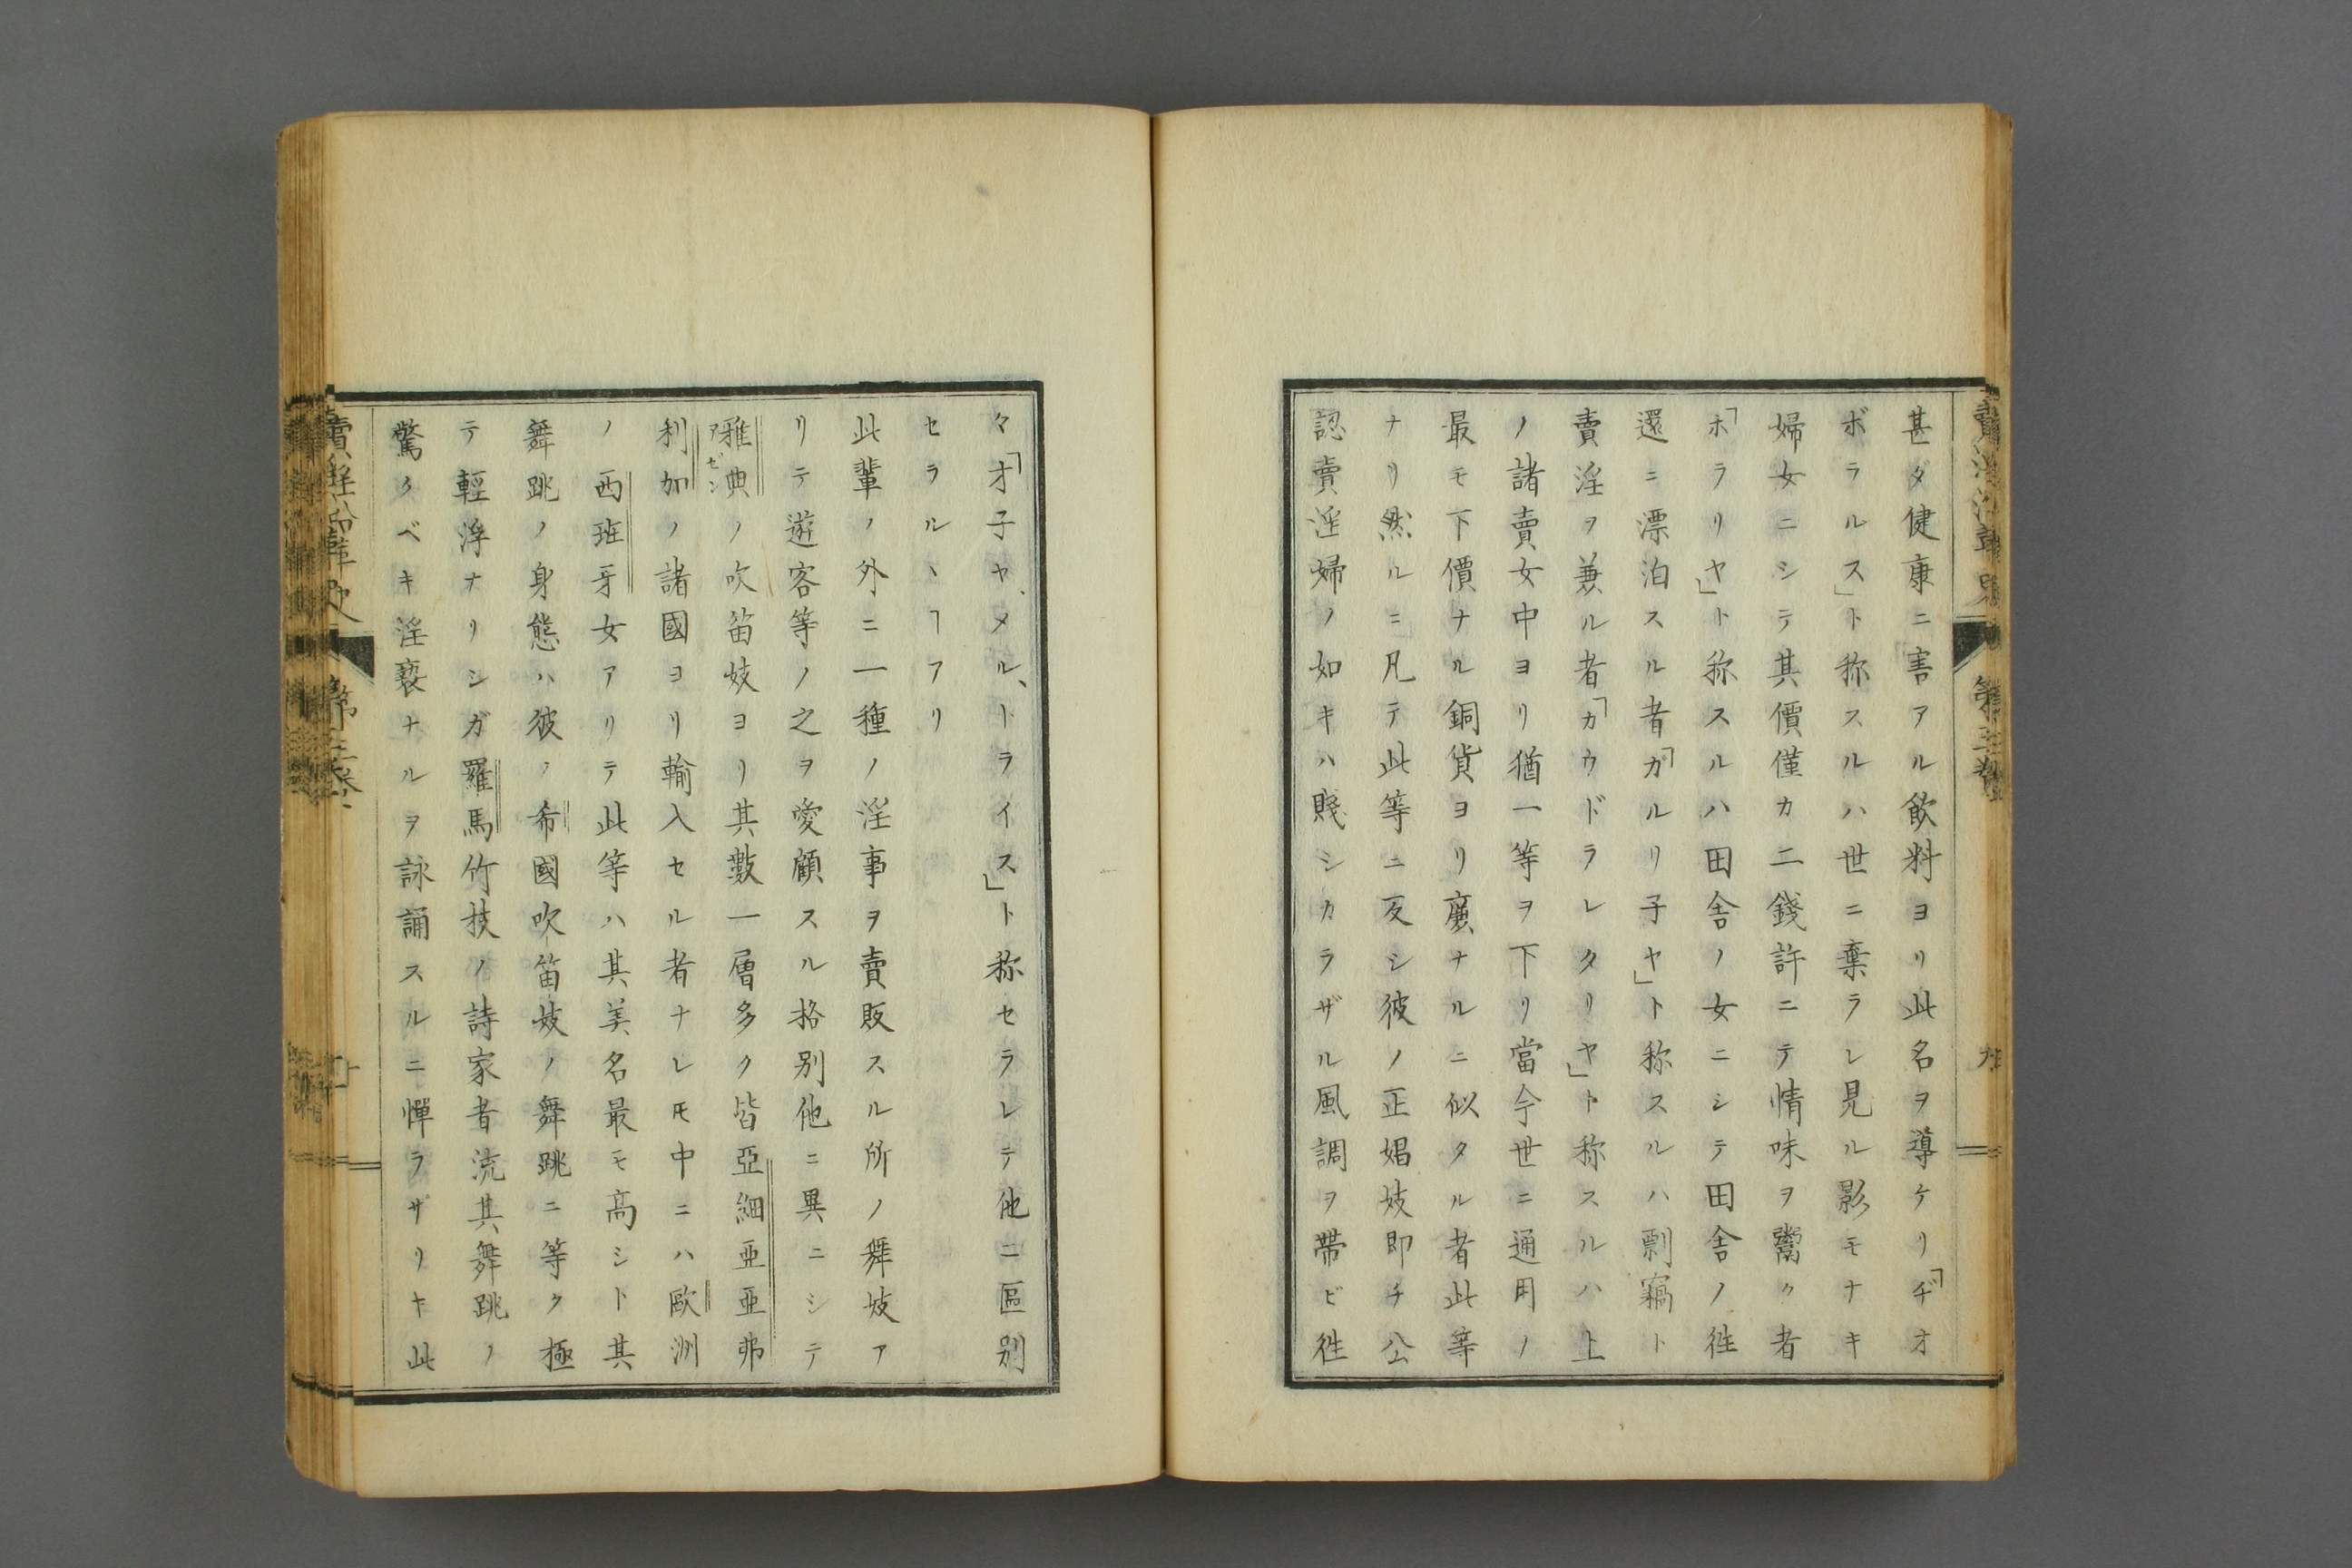 甚ダ健康ニ害アル飲料ヨリ此名ヲ導ケリ「ヂオ
ボラルス」ト称スルハ世ニ棄ラレ見ル影モナキ
婦女ニシテ其價僅カ二錢許ニテ情味ヲ鬻ク者
「ホラリヤ」ト称スルハ田舎ノ女ニシテ田舎ノ徃
還ニ漂泊スル者「ガルリ子ヤ」ト称スルハ剽竊ト
賣淫ヲ兼ル者「カウドラレタリヤ」ト称スルハ上
ノ諸賣女中ヨリ猶一等ヲ下リ當今世ニ通用ノ
最モ下價ナル銅貨ヨリ廣ナルニ似タル者此等
ナリ然ルニ凡テ此等ニ反シ彼ノ正娼妓即チ公
認賣淫婦ノ如キハ賤シカラザル風調ヲ帯ビ徃
々「オ子ヤ、メル、トライス」ト称セラレテ他ニ區别
セラルヽヿアリ
此輩ノ外ニ一種ノ淫事ヲ賣販スル所ノ舞妓ア
リテ遊客等ノ之ヲ愛顧スル格别他ニ異ニシテ
雅典ノ吹笛妓ヨリ其數一層多ク皆亞細亜亜弗
アゼン
利加ノ諸國ヨリ輸入セル者ナレ𪜈中ニハ歐洲
ノ西班牙女アリテ此等ハ其美名最モ高シト其
舞跳ノ身態ハ彼ノ希國吹笛妓ノ舞跳ニ等ク極
テ輕浮ナリシガ羅馬竹技ノ詩家者流其舞跳ノ
驚クベキ淫褻ナルヲ詠誦スルニ憚ラザリキ此